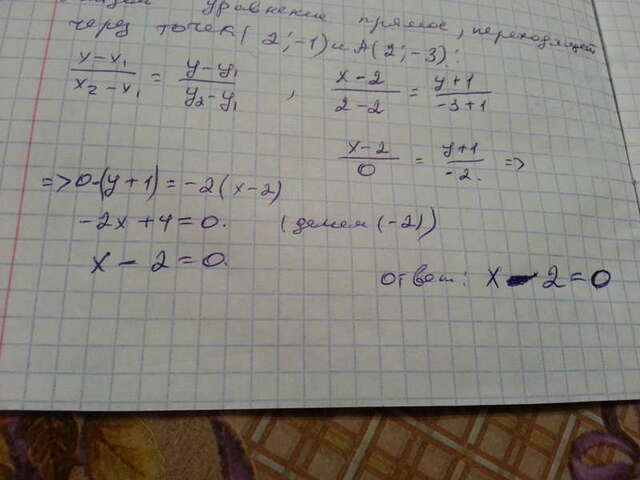 уравнение прямое, переходящей
через точек ( 2; -1) и A(2; -3):
x-x₁/x₂-x₁ = y-y₁/y₂-y₁ , x-2/2-2 = y+1/-3+1
x-2/0 = y+1/-2. =>
=> 0·(y+1) = -2(x-2)
-2x+4=0. (делем (-2))
x-2=0.
ответ: x-2=0